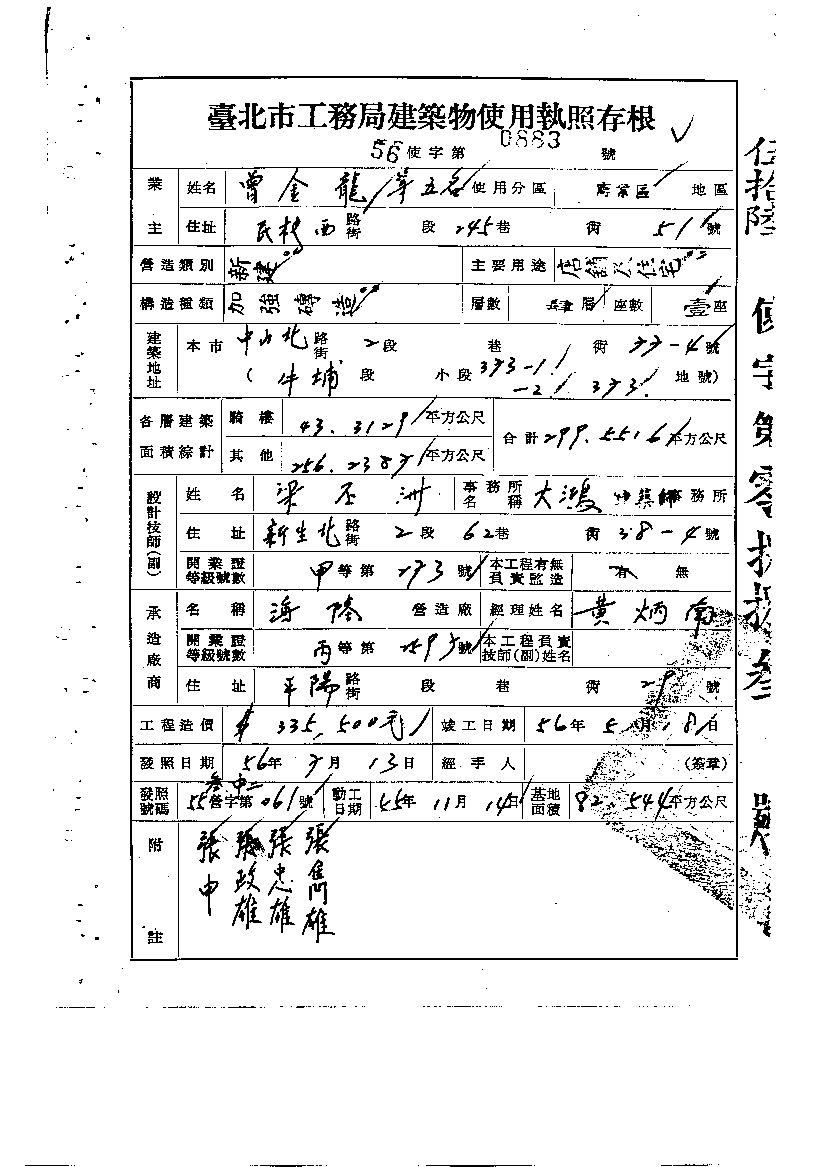 臺北市工務局建築物使用執照存根
56使字第 0883 號
業主 姓名 曾金龍等五名 使用分區 商業區 地區
住址 民族西 路街 段 245巷 衖 51號
營造類別 新建 主要用途 店鋪及住宅
構造種類 加強磚造 層數 層 座數 壹座
建築地址 本市 中山北 路街 2段 巷 衖 77-4號
(牛埔 段 小段 373-1 -2 373 地號)
各層建築面積綜計 騎樓 43.3129 平方公尺 合計 299.5516 平方公尺
其他 256.2387 平方公尺
設計技師(副) 姓名 梁丕洲 事務所名稱 大鴻建築師事務所
住址 新生北 路街 2段 62巷 衖 38-4號
開業證等級號數 甲等第 273號 本工程有無負責監造 有 無
承造廠商 名稱 海陸 營造廠 經理姓名 黃炳南
開業證等級號數 丙等第 號 本工程負責技師(副)姓名
住址 平陽 路街 段 巷 衖 29 號
工程造價 $335,500元 竣工日期 56年5月18日
發照日期 56年7月13日 經手人 (簽章)
發照號碼 55營字第061號 動工日期 55年11月14日 基地面積 82.544平方公尺
附註 張申 張政雄 張忠雄 張雋雄
伍拾陸 使字第零捌捌叁